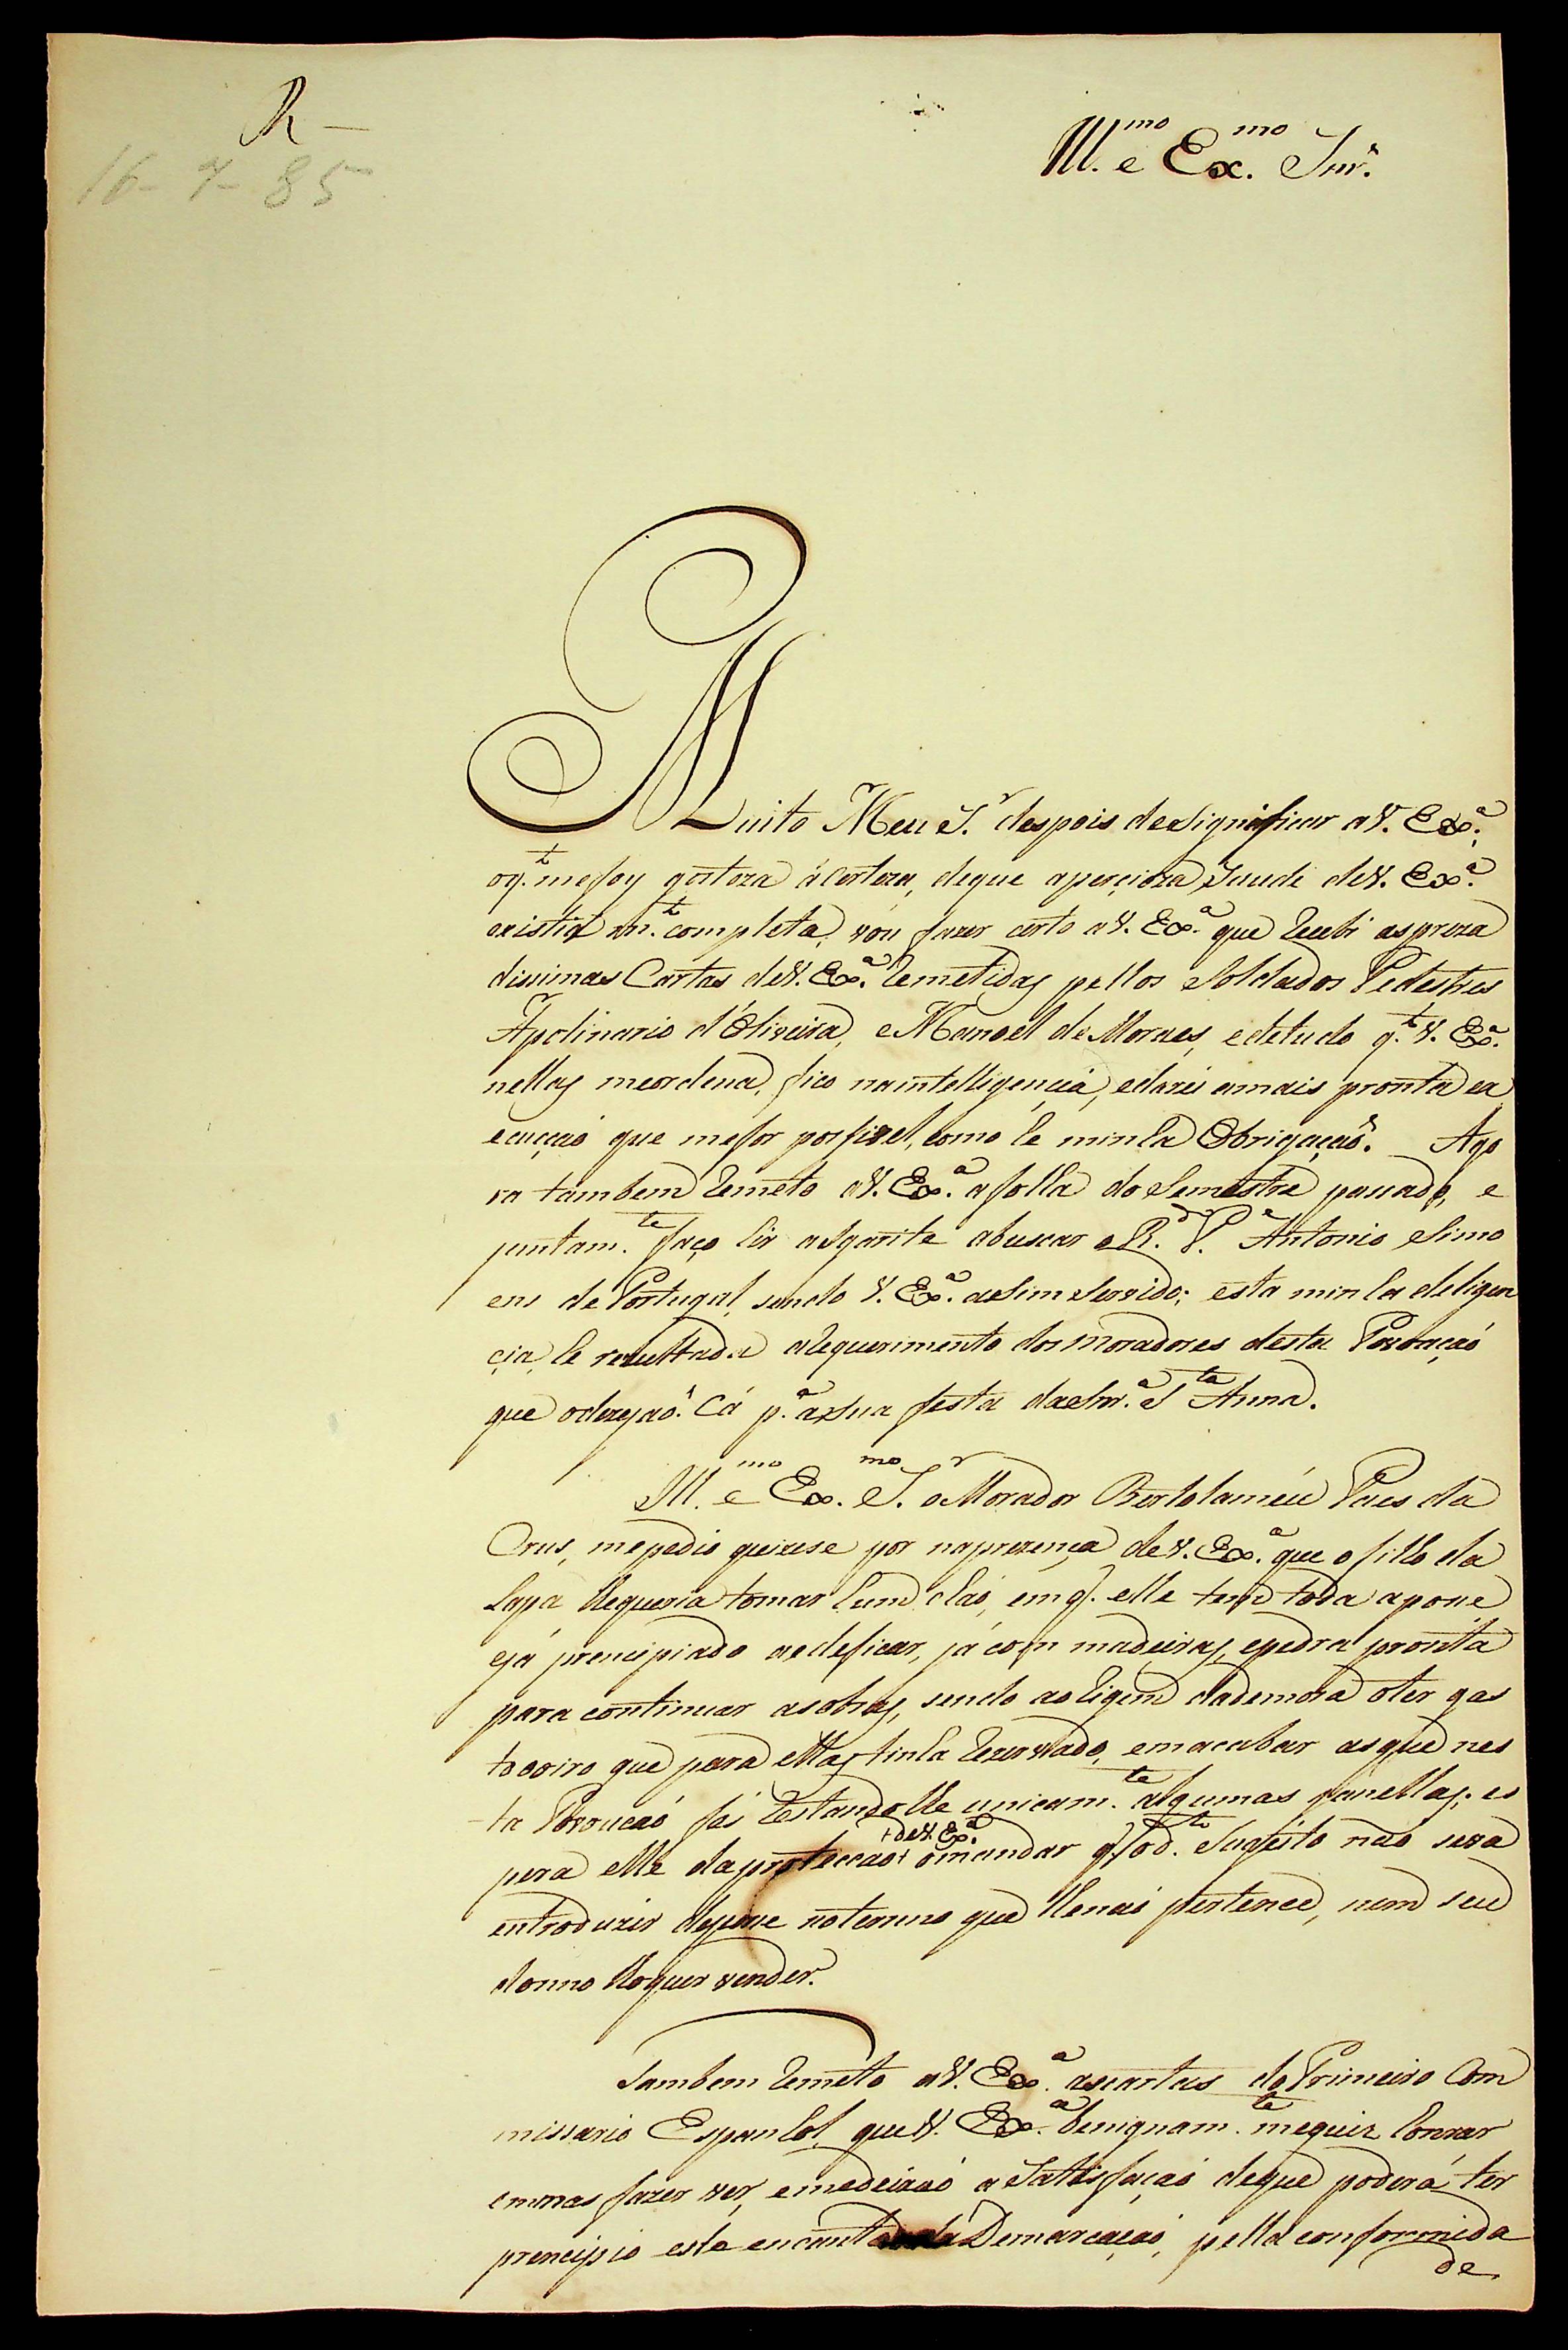 R -
16-7-85
Ill.mo e Ex.mo Snr.
Muito Meu S.r despois deSignificar aV. Ex.a,
oq.to mefoy gostoza àcerteza, deque aperçioza Saude deV. Ex.a
existia m.to completa, vou fazer certo aV. Ex.a que Recebi aspreza
dissimas Cartas deV. Ex.a Remetidas pellos Soldados Pedestres
Apolinario d'Oliveira, eManoel deMoraes, edetudo q.to V. Ex.a
nellas meordena, fico naintelligençia, edarei amais pronta ex
ecucçaõ que mefor possivel, como he minha Obrigaçaõ. Ago
ra tambem Remeto aV. Ex.a afolha do Semestre passado, e
juntam.te faço hir aIgarite abuscar oR.do P.e Antonio Simo
ens dePortugal, sendo V. Ex.a aSimServido; esta minha deligen
çia, he rezultada aRequerimento dos Moradores desta Povoaçaõ
que odezejaõ. Cá p.a aSua festa daSnr.a S.ta Anna.
Ill.mo e Ex.mo S.r oMorador Bertolaméu Paes da
Crus, mepedio quizese por naprezença deV. Ex.a que ofilho da
Lapa lhequeria tomar hum chaõ, emq. elle tem toda aposse
ejá prencipiado aedeficar, já com madeiras, epedra pronta
para continuar asobras, sendo aoRigem dademora oter gas
toooiro que para ellas tinha Rezervado, emacabar asque nes
ta Povoacaõ fés Restandolhe unicam.te algumas panellas; es
pera elle daprotecçaõ + deV. Ex.a + omandar q. od.to Sugeito naõ sera
entroduzir deposse noterreno que lhenaõ pertence, nem seu
donno lhoquer vender.
Tambem Remeto aV. Ex.a ascartas doPrimeiro Com
missario Espanhol, queV. Ex.a benignam.te mequiz honrar
emmas fazer ver, emedeixaõ aSatisfaçaõ deque poderá ter
prencipio esta encantada Demarcaçaõ, pella conformida
de,